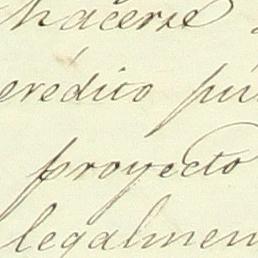 hacerse
crédito pú
proyecto
legalmen